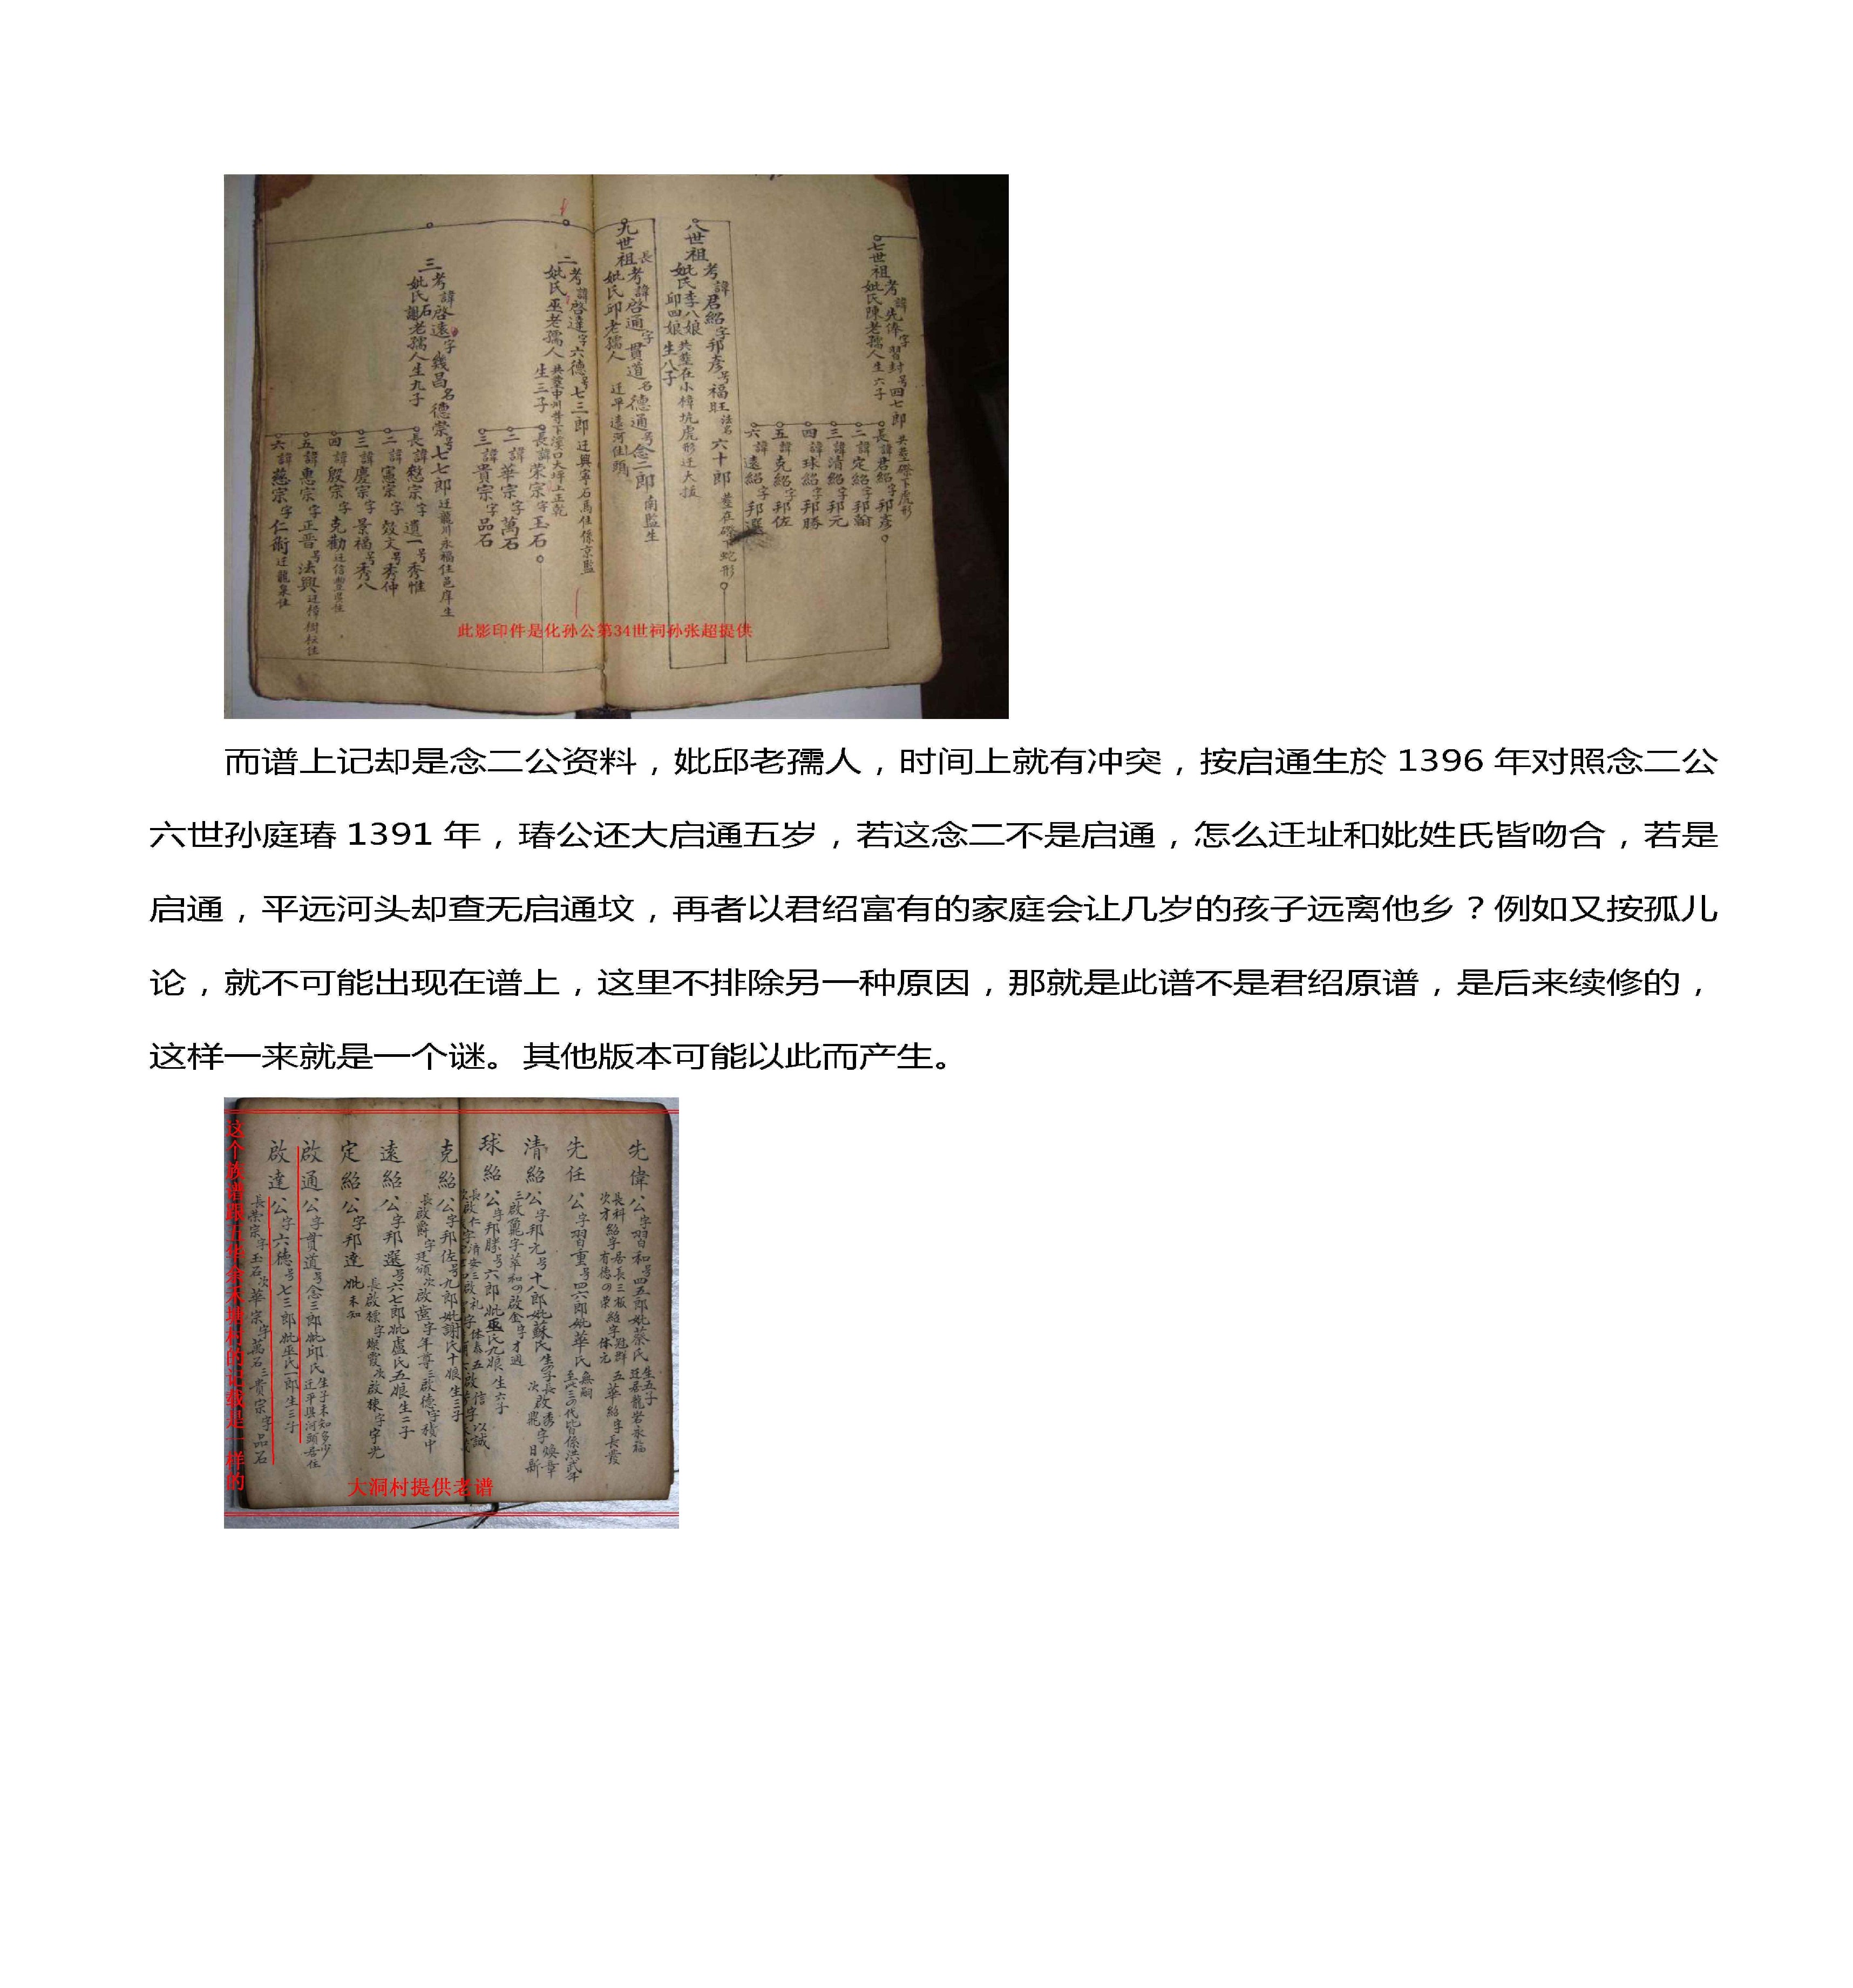 七世祖考諱先俸字習封号四七郎 共墓磜下虎形
妣氏陳老孺人生六子
長諱君紹字邦彥
二諱定紹字邦翰
三諱清紹字邦元
四諱球紹字邦勝
五諱克紹字邦佐
六諱遠紹字邦選
八世祖考諱君紹字邦彥号福旺法名六十郎 墓在磜下蛇形
妣氏李八娘 邱四娘 共墓在小樟坑虎形迁大拔
生八子
九世祖長考諱啓通字貫道名德通号念二郎 南監生
妣氏邱老孺人 迁平遠河住頭
二考諱啓達字六德号七三郎 迁興寧石馬住係京監
妣氏巫老孺人 生三子
長諱荣宗字玉石
二諱華宗字萬石
三諱貴宗字品石
三考諱啓遠字錢昌名德崇号七七郎 迁龍川永福住邑庠生
妣氏石謝老孺人生九子
長諱愸宗字遺一号秀惟
二諱憲宗字效文号秀仲
三諱慶宗字景福号秀八
四諱殷宗字克勸迁信豊住
五諱惠宗字正晋号法興迁樟樹杜住
六諱慈宗字仁術迁龍泉住
此影印件是化孙公第34世祠孙张超提供
而谱上记却是念二公资料，妣邱老孺人，时间上就有冲突，按启通生於 1396 年对照念二公
六世孙庭瑃 1391 年，瑃公还大启通五岁，若这念二不是启通，怎么迁址和妣姓氏皆吻合，若是
启通，平远河头却查无启通坟，再者以君绍富有的家庭会让几岁的孩子远离他乡？例如又按孤儿
论，就不可能出现在谱上，这里不排除另一种原因，那就是此谱不是君绍原谱，是后来续修的，
这样一来就是一个谜。其他版本可能以此而产生。
先偉公字習和号四五郎妣蔡氏生五子
先任公字習重号四六郎妣華氏無嗣
清紹公字邦元号十八郎妣蘇氏
球紹公字邦勝号六郎妣巫氏九娘生六子
克紹公字邦佐号九郎妣謝氏十娘生三子
遠紹公字邦選号六七郎妣盧氏五娘生二子
定紹公字邦達妣未知
啟通公字貫道号念三郎妣邱氏生子未知多少迁平縣河頭居住
啟達公字六德号七三郎妣巫氏一郎生三子
長荣宗字玉石次華宗字萬石三貴宗字品石
这个族谱跟五华余禾塘村的记载是一样的
大洞村提供老谱